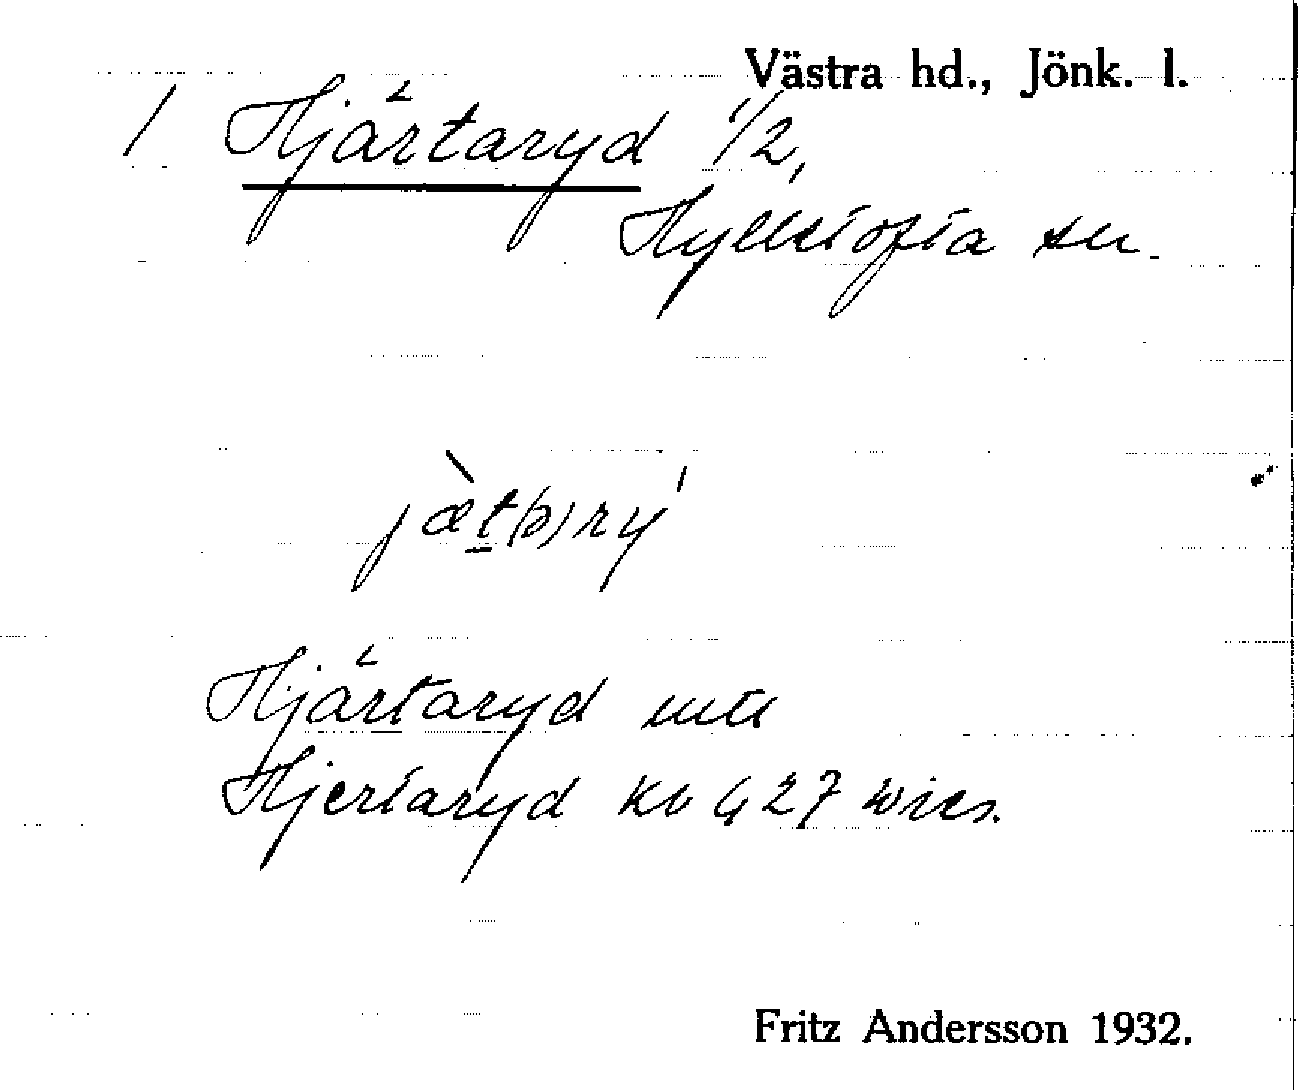 Västra hd., Jönk. l.
/ Hjärtaryd 1/2,
Hylletofta sn.
jæ̀t(ə)ry'
Hjärtaryd mtl
Hjertaryd kb 427 wies.
Fritz Andersson 1932.